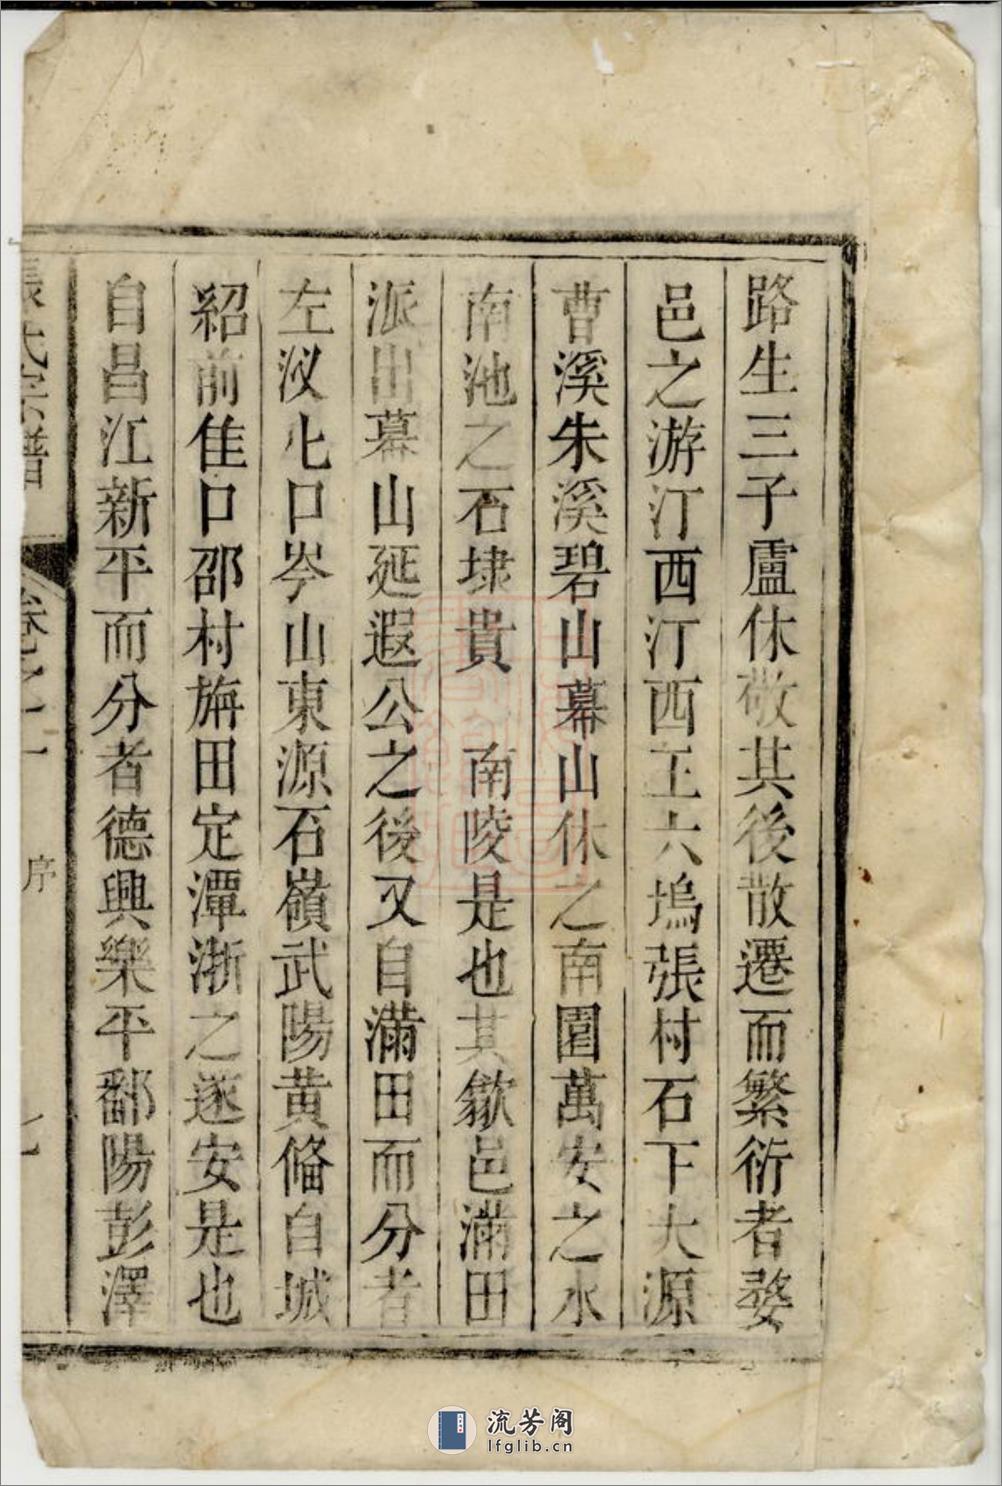 路生三子盧休敬其後散遷而繁衍者婺
邑之游汀西汀西王六塢張村石下大源
曹溪朱溪碧山幕山休之南園萬安之水
南池之石埭貴 南陵是也其歙邑滿田
派出幕山延遐公之後又自滿田而分者
左汊七口岑山東源石嶺武陽黃備自城
紹前佳口邵村旃田定潭浙之遂安是也
自昌江新平而分者德興樂平鄱陽彭澤
張氏宗譜 卷之一 序 七
流芳阁
lfglib.cn